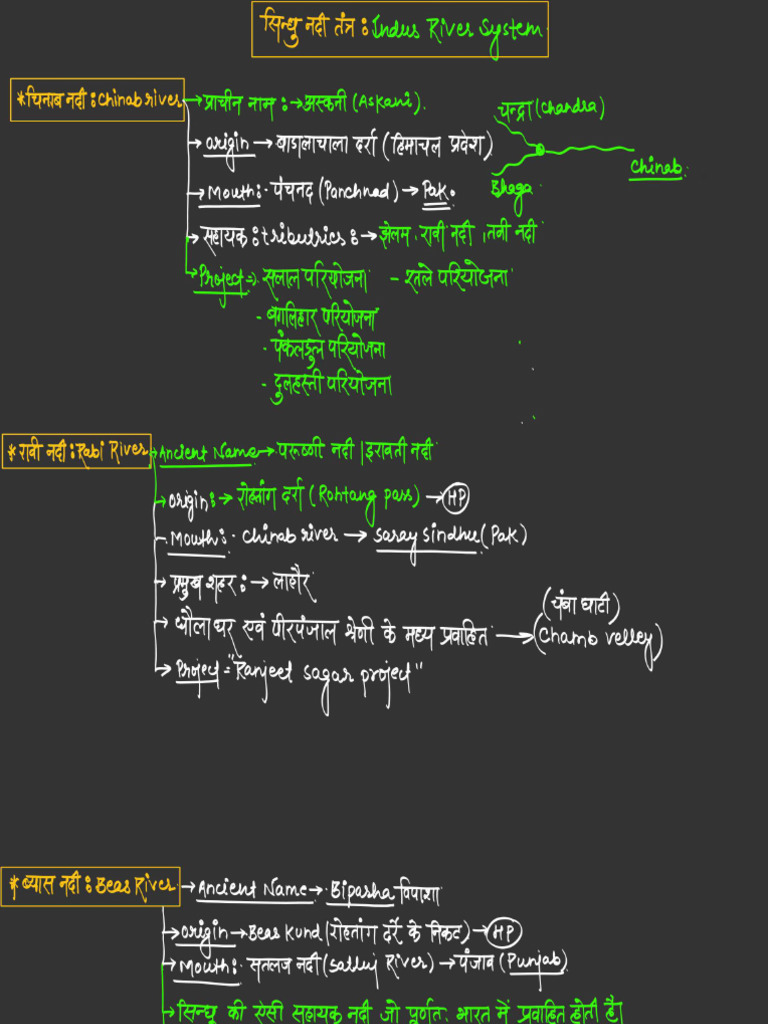 सिन्धु नदी तंत्र : Indus River System
* चिनाब नदी : Chinab river → प्राचीन नाम : → अस्कनी (Askani).
चन्द्रा (Chandra)
Bhaga
Chinab
→ origin → बाडालाचाला दर्रा (हिमाचल प्रदेश)
→ Mouth : - पंचनद (Panchnad) → Pak.
→ सहायक : tributrics : → झेलम, रावी नदी, तवी नदी
→ Project → सलाल परियोजना - रतले परियोजना
- बगलिहार परियोजना
- पंकलडुल परियोजना
- दुलहस्ती परियोजना
* रावी नदी : Rabi River → Ancient Name → परूष्णी नदी | इरावती नदी
→ origin : → रोहतांग दर्रा (Rohtang pass) → HP
- Mouth : - chinab river → saray sindhu (Pak)
→ प्रमुख शहर : → लाहौर
→ धौलाधर एवं पीरपंजाल श्रेणी के मध्य प्रवाहित → (चंबा घाटी)
(Chamb velley)
→ Project = "Ranjeet sagar project"
* ब्यास नदी : Beas River → Ancient Name → Bipasha विपाशा
→ origin → Beas Kund (रोहतांग दर्रे के निकट) → HP
→ Mouth : सतलज नदी (Satluj River) → पंजाव (Punjab)
→ सिन्धु की ऐसी सहायक नदी जो पूर्णतः भारत में प्रवाहित होती है।